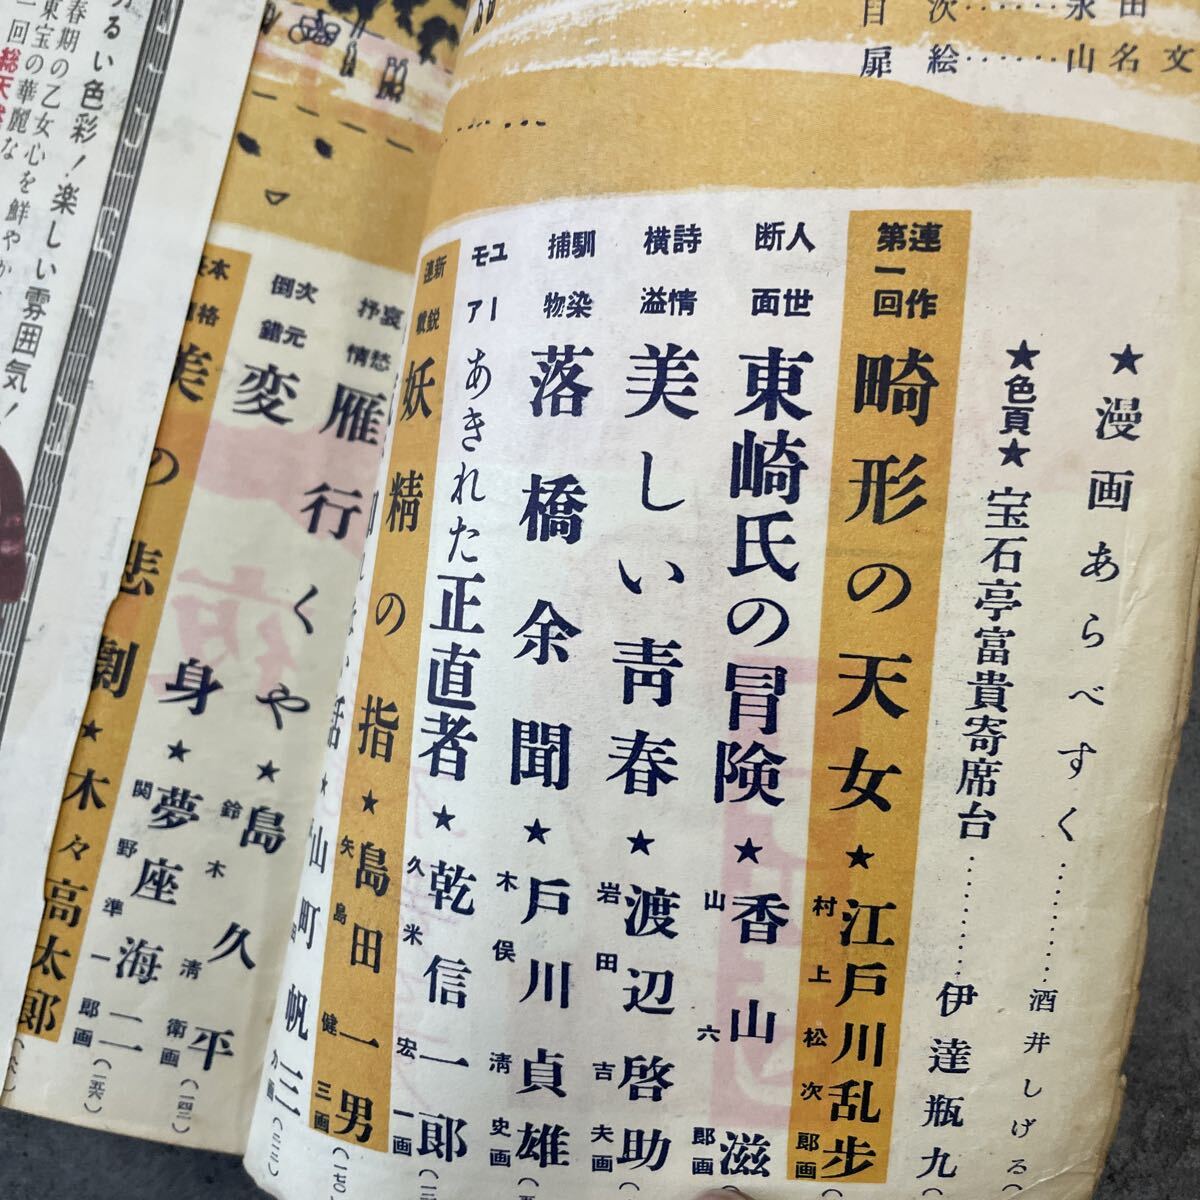 目次……永田
扉絵……山名文
★漫画あらべすく…………酒井しげる
★色頁★宝石亭富貴寄席台…………伊達瓶九
連作第一回
畸形の天女★江戸川乱歩
村上松次郎画
人世断面
東崎氏の冒険★香山滋
山六郎画
詩情横溢
美しい青春★渡辺啓助
岩田吉夫画
馴染捕物
落橋余聞★戸川貞雄
木俣清史画
ユーモア
あきれた正直者★乾信一郎
久米宏一画
新鋭連載
妖精の指★島田一男
矢島健三画
(一七〇)
話★山町帆三
(二二二)
哀愁抒情
雁行くや★島久平
鈴木清衛画
(一四二)
次元倒錯
変身★夢座海二
関野準一郎画
(一五六)
本格
美の悲劇★木々高太郎
るい色彩!楽しい雰囲気!
春期の乙女心を鮮やか
東宝の華麗な
一回総天然